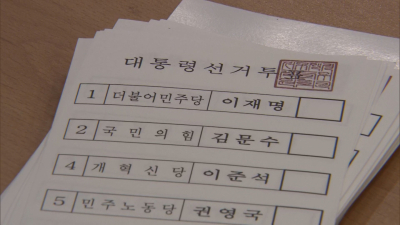 대통령선거투표
1 더불어민주당 이재명
2 국민의힘 김문수
4 개혁신당 이준석
5 민주노동당 권영국